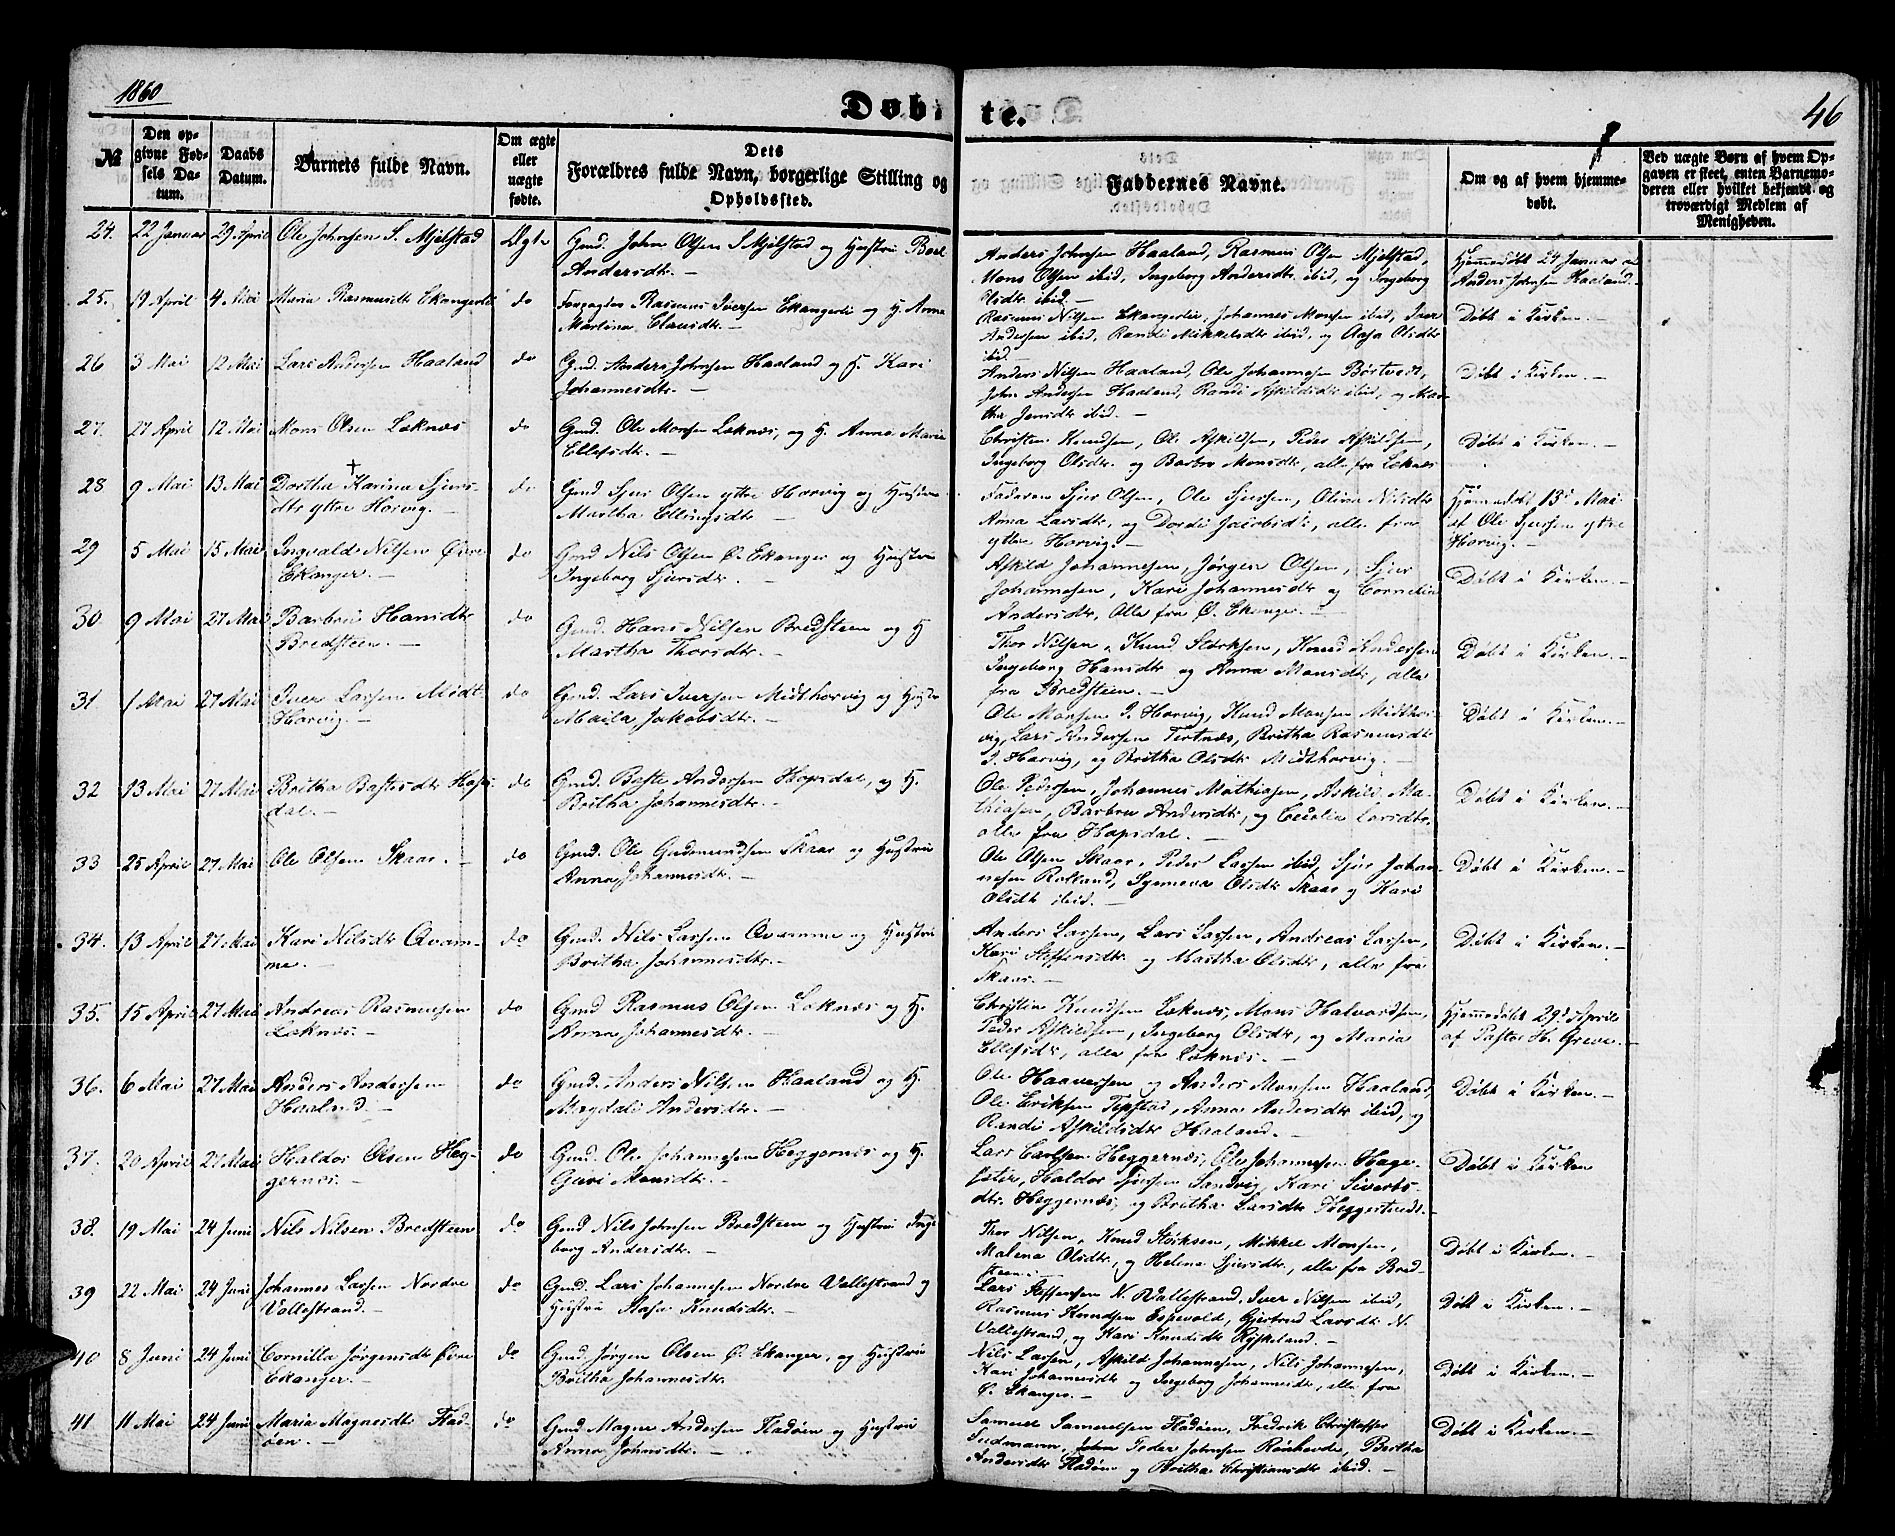 1860
Døbte.
46
№
Den opgivne Fødsels Datum.
Daabs Datum.
Barnets fulde Navn.
Om ægte eller uægte fødte.
Dets Forældres fulde Navn, borgerlige Stilling og Opholdssted.
Faddernes Navne.
Om og af hvem hjemmedøbt.
Ved uægte Børn af hvem Opgaven er skeet, enten Barnemoderen eller hvilket bekjendt og troværdigt Medlem af Menigheden.
24. 22 Januar 29 April Ole Johnsen S. Mjelstad Ægte Gmd. John Olsen S. Mjelstad og Hustru Beel
Andersdtr. —
Anders Johnsen Haaland, Rasmus Olsen Mjelstad,
Mons Olsen ibid, Ingeborg Andersdtr ibid, og Ingeborg
Olsdtr ibid. —
Hjemmedøbt 24 Januar af
Anders Johnsen Haaland. —
25. 19 April 4 Mai Maria Rasmusdtr Ekangerlie do Forpagter Rasmus Iversen Ekangerlie og H. Anna
Martina Clausdtr. —
Rasmus Nilsen Ekangerlie, Johannes Monsen ibid, Iver
Andersen ibid, Randi Mikkelsdtr ibid, og Aasa Olsdtr
ibid. —
Døbt i Kirken. —
26 3 Mai 12 Mai Lars Andersen Haaland do Gmd. Anders Johnsen Haaland og H. Kari
Johannesdtr. —
Anders Nilsen Haaland, Ole Johannesen Børtvedt,
John Andersen Haaland, Randi Askildsdtr ibid, og Mar-
tha Jensdtr ibid. —
Døbt i Kirken. —
27. 27 April 12 Mai Mons Olsen Leknæs do Gmd. Ole Monsen Leknæs, og H. Anna Maria
Ellefsdtr. —
Christen Knudsen, Ole Askildsen, Peder Askildsen,
Ingeborg Olsdtr. og Barbro Monsdtr, alle fra Leknæs
Døbt i Kirken. —
28 9 Mai 13 Mai Dorthea Karina Sjurs-
dtr yttre Horvig. —
do Gmd Sjur Olsen yttre Horvig og Hustru
Martha Ellingsdtr —
Faderen Sjur Olsen, Ole Sjursen, Olina Nilsdtr
Anna Larsdtr, og Dordei Jacobsdtr, alle fra
yttre Horvig. —
Hjemmedøbt 13d Mai
af Ole Sjursen yttre
Horvig. —
29 5 Mai 15 Mai Ingvald Nilsen Øvre
Ekanger. —
do Gmd Nils Olsen Ø. Ekanger og Hustru
Ingeborg Sjursdtr. —
Askild Johannesen, Jørgen Olsen, Sjur
Johannesen, Kari Johannesdtr og Cornelia
Andersdtr, Alle fra Ø. Ekanger. —
Døbt i Kirken. —
30 9 Mai 27 Mai Barbru Hansdtr
Bredsteen. —
do Gmd. Hans Nilsen Bredsteen og H
Martha Thorsdtr. —
Thor Nilsen, Knud Størksen, Knud Andersen
Ingeborg Hansdtr og Anna Monsdtr, alle
fra Bredsteen. —
Døbt i Kirken. —
31 1 Mai 27 Mai Iver Larsen Midt-
Horvig. —
do Gmd. Lars Iversen Midthorvig og Hustr
Maila Jakobsdtr. —
Ole Monsen I. Horvig, Knud Monsen Midthor-
vig, Lars Andersen Tertnæs, Britha Rasmusdtr
I. Horvig, og Britha Olsdtr Midthorvig. —
Døbt i Kirken. —
32 13 Mai 27 Mai Britha Bastesdtr Hops-
dal. —
do Gmd. Baste Andersen Hopsdal, og H.
Britha Johannesdtr. —
Ole Pedersen, Johannes Mathiasen, Askild Ma-
thiasen, Barbru Andersdtr, og Cecilia Larsdtr,
alle fra Hopsdal. —
Døbt i Kirken. —
33 25 April 27 Mai Ole Olsen Skaar. — do Gmd. Ole Gudmundsen Skaar og Hustru
Anna Johannesdtr. —
Ole Olsen Skaar, Peder Larsen ibid, Sjur Johan-
nesen Rolland, Synneva Olsdtr Skaar og Kari
Olsdtr ibid. —
Døbt i Kirken. —
34. 13 April 27 Mai Kari Nilsdtr Qvam-
me. —
do Gmd. Nils Larsen Qvamme og Hustru
Britha Johannesdtr. —
Anders Larsen, Lars Larsen, Andreas Larsen,
Kari Steffensdtr. og Martha Olsdtr, alle fra
Skaar. —
Døbt i Kirken. —
35. 15 April 27 Mai Andreas Rasmusen
Leknæs. —
do Gmd Rasmus Olsen Leknæs og H.
Anna Johannesdtr. —
Christen Knudsen Leknæs, Mons Halvordsen,
Peder Askildsen, Ingeborg Olsdtr, og Maria
Ellefsdtr, alle fra Leknæs. —
Hjemmedøbt 29d April
af Pastor H. Greve. —
36. 6 Mai 27 Mai Anders Andersen
Haaland. —
do Gmd. Anders Nilsen Haaland og H.
Magdali Andersdtr. —
Ole Haaversen og Anders Monsen Haaland,
Ole Eriksen Tepstad, Anna Andersdtr ibid, og
Randi Askildsdtr Haaland. —
Døbt i Kirken. —
37. 20 April 27 Mai Haldor Olsen Heg-
gernæs. —
do Gmd. Ole Johannesen Heggernæs og H.
Guri Monsdtr. —
Lars Carlsen Heggernæs, Ole Johannesen Hage-
ster, Haldor Sjursen Sandvig, Kari Siverts-
dtr. Heggernæs, og Britha Larsdtr Heggertvedt. —
Døbt i Kirken
38. 19 Mai 24 Juni Nils Nilsen Bredsteen do Gmd Nils Johnsen Bredsteen og Hustru Inge
borg Andersdtr. —
Thor Nilsen, Knud Størksen, Mikkel Monsen,
Malena Olsdtr, og Helena Sjursdtr, alle fra Bred-
steen. —
Døbt i Kirken. —
39 22 Mai 24 Juni Johannes Larsen Nordre
Vallestrand. —
do Gmd. Lars Johannesen Nordre Vallestrand og
Hustru Aasa Knudsdtr. —
Lars Steffensen N. Vallestrand, Iver Nilsen ibid,
Rasmus Knudsen Espevold, Gjertrud Larsdtr N.
Vallestrand, og Kari Knudsdtr Ryskeland. —
Døbt i Kirken. —
40 8 Juni 24 Juni Cornilla Jørgensdtr Øvre
Ekanger. —
do Gmd Jørgen Olsen Ø. Ekanger, og Hustru
Britha Johannesdtr.
Nils Larsen, Askild Johannesen, Nils Johannesen,
Kari Johannesdtr og Ingeborg Johannesdtr, alle fra
Ø. Ekanger. —
Døbt i Kirken. —
41. 11 Mai 24 Juni Maria Magnesdtr Flad-
øen. —
do Gmd Magne Andersen Fladøen og Hustru
Anna Johnsdtr. —
Samuel Samuelsen Fladøen, Fredrik Christoffer
Sudmann, Peder Johnsen Rønhovde, Britha
Andersdtr Fladøen og Britha Christiansdtr ibid. —
Døbt i Kirken. —